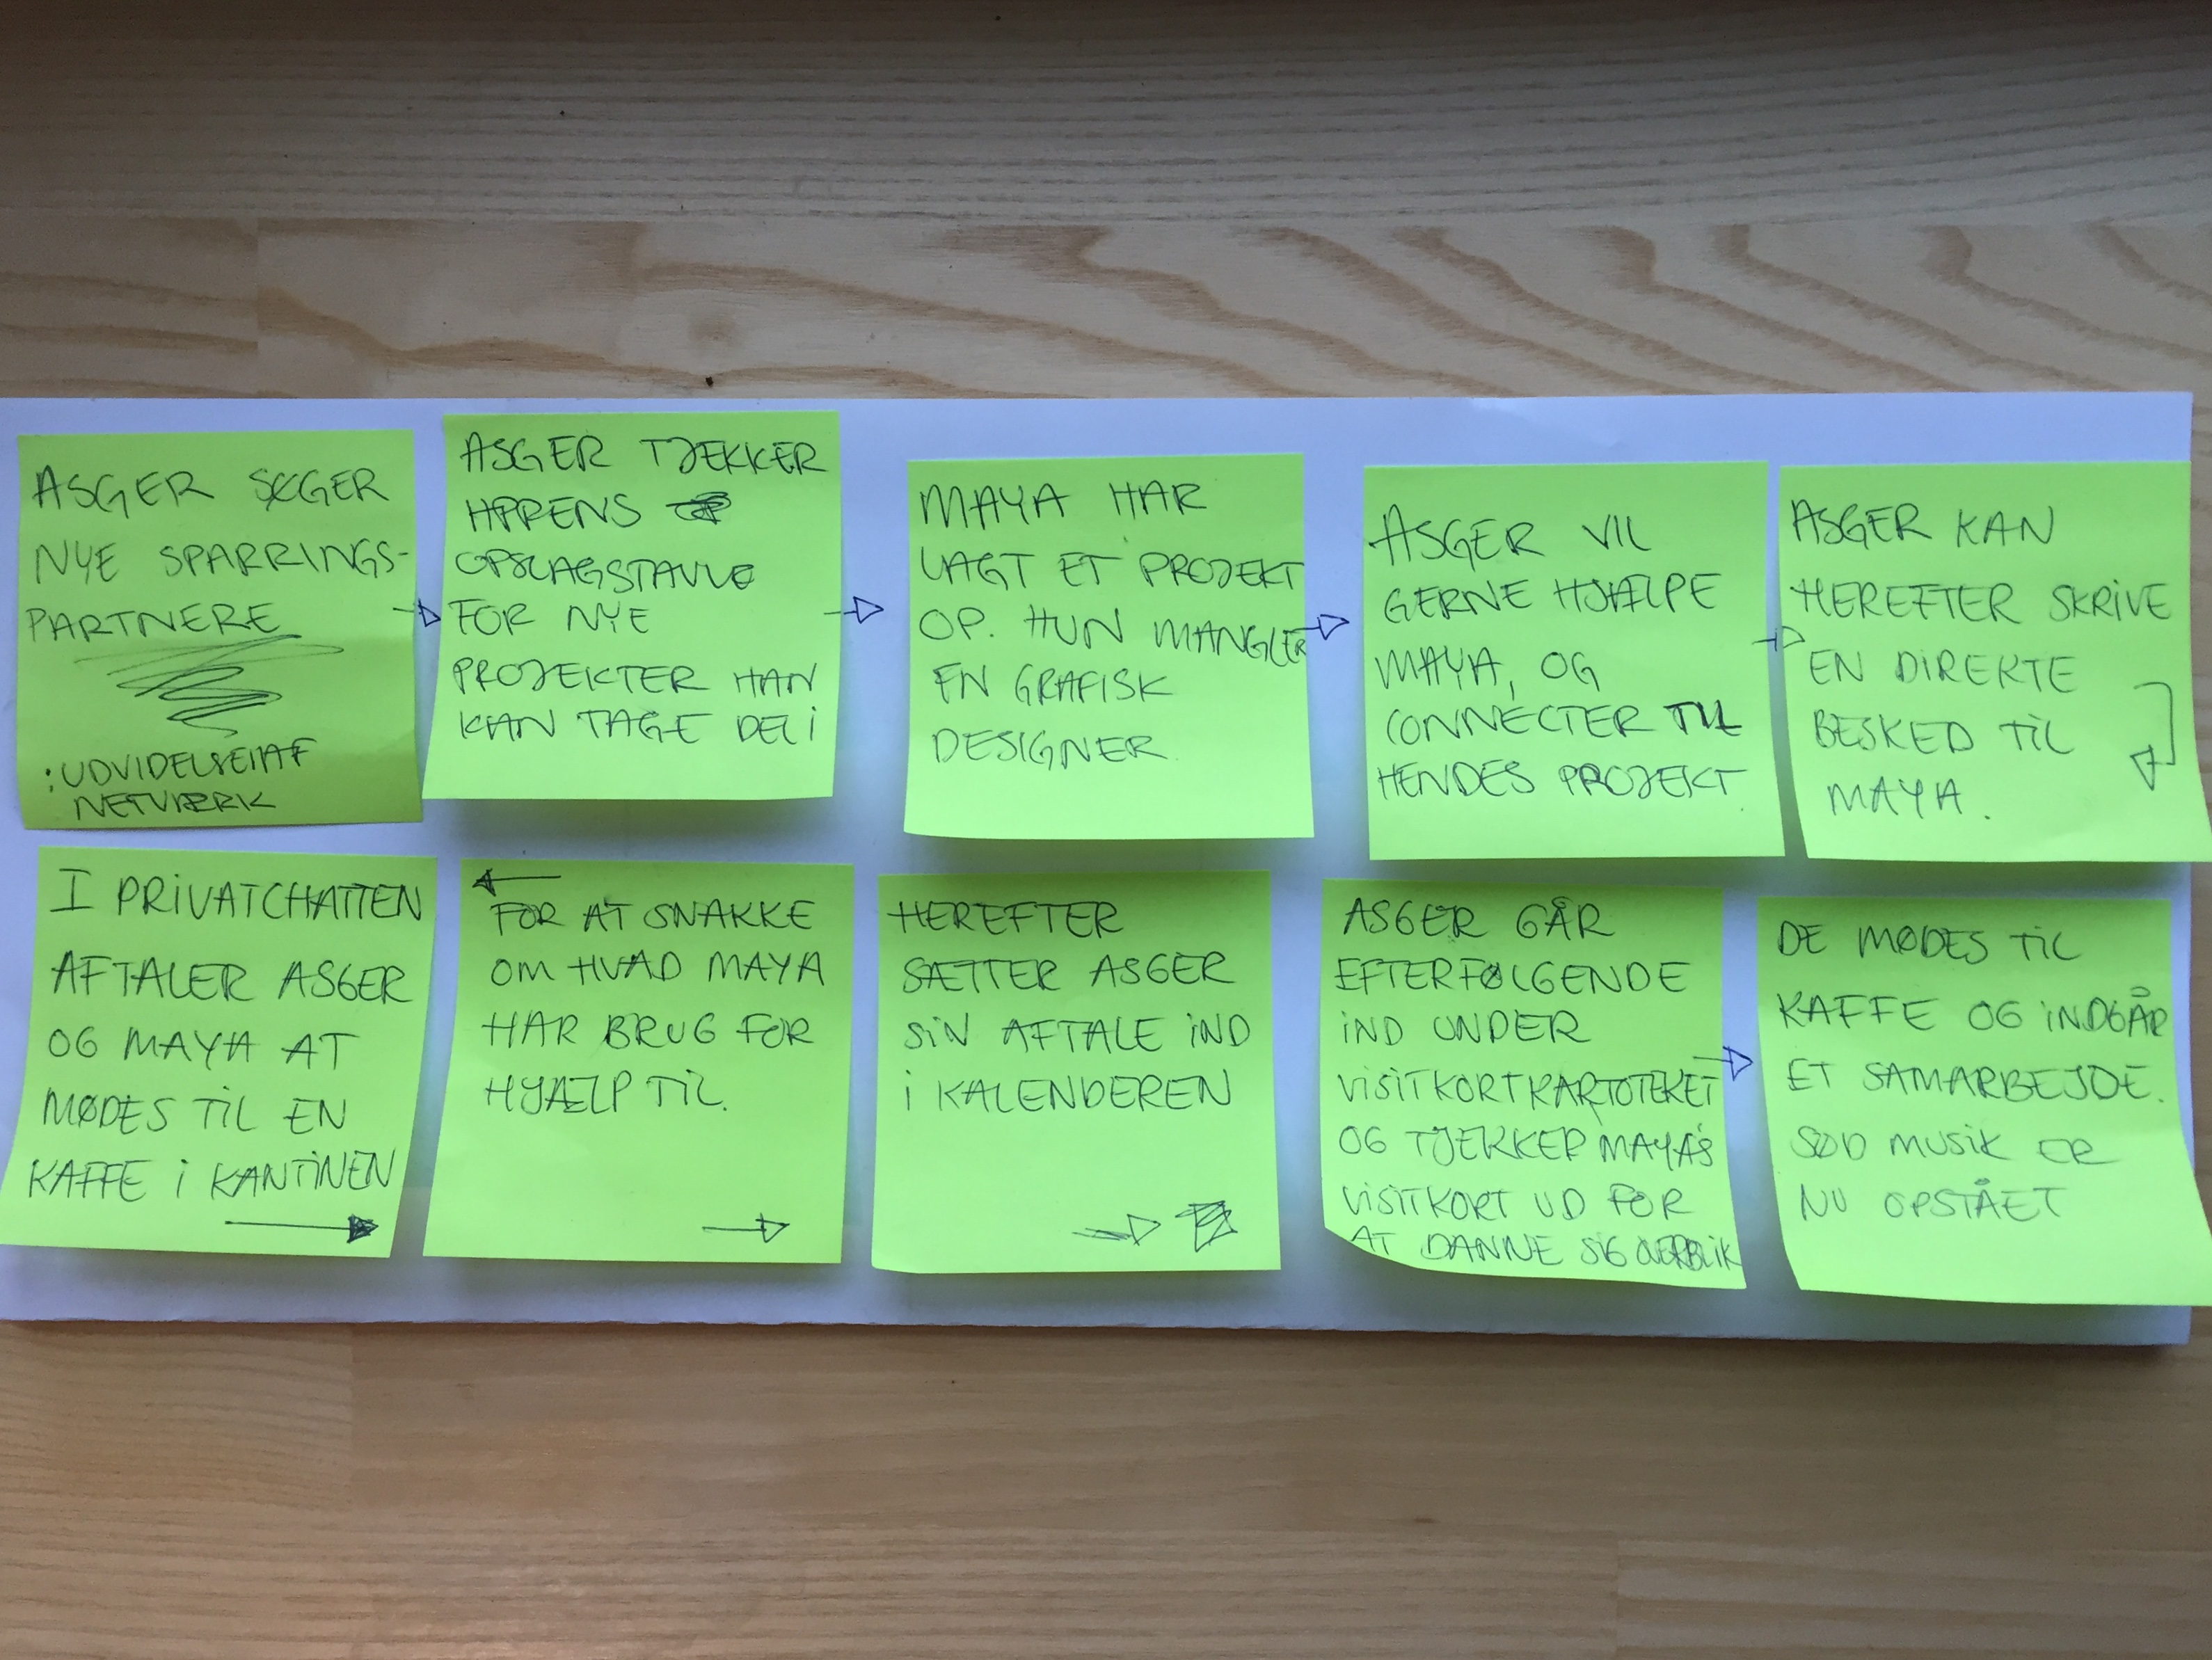 ASGER SØGER
NYE SPARRINGS-
PARTNERE
: UDVIDELSE AF
NETVÆRK
ASGER TJEKKER
APPENS
OPSLAGSTAVLE
FOR NYE
PROJEKTER HAN
KAN TAGE DEL I
MAYA HAR
LAGT ET PROJEKT
OP. HUN MANGLER
EN GRAFISK
DESIGNER.
ASGER VIL
GERNE HJÆLPE
MAYA, OG
CONNECTER TIL
HENDES PROJEKT.
ASGER KAN
HEREFTER SKRIVE
EN DIREKTE
BESKED TIL
MAYA.
I PRIVATCHATTEN
AFTALER ASGER
OG MAYA AT
MØDES TIL EN
KAFFE I KANTINEN
FOR AT SNAKKE
OM HVAD MAYA
HAR BRUG FOR
HJÆLP TIL.
HEREFTER
SÆTTER ASGER
SIN AFTALE IND
I KALENDEREN
ASGER GÅR
EFTERFØLGENDE
IND UNDER
VISITKORTKARTOTEKET
OG TJEKKER MAYA'S
VISITKORT UD FOR
AT DANNE SIG OVERBLIK
DE MØDES TIL
KAFFE OG INDGÅR
ET SAMARBEJDE.
SØD MUSIK ER
NU OPSTÅET